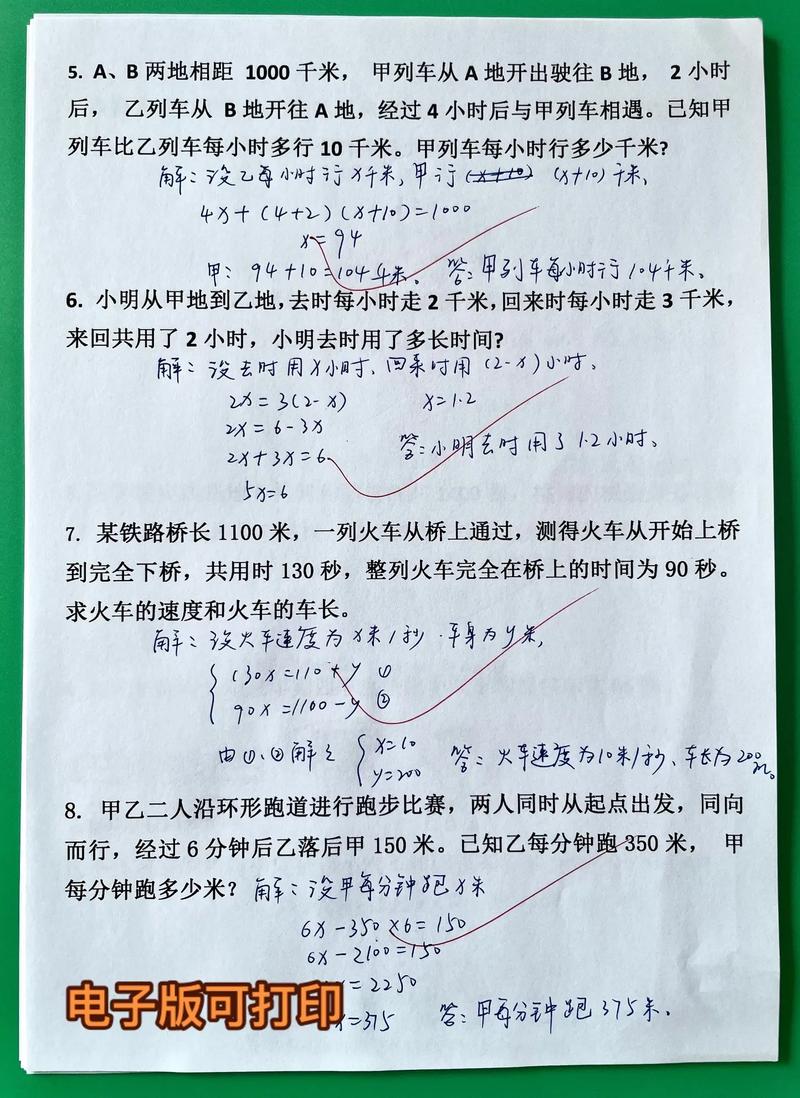 5. A、B 两地相距 1000 千米， 甲列车从 A 地开出驶往 B 地， 2 小时
后， 乙列车从 B 地开往 A 地，经过 4 小时后与甲列车相遇。已知甲
列车比乙列车每小时多行 10 千米。甲列车每小时行多少千米?
解：设乙每小时行x千米，甲行(x+10) (x+10)千米，
4x+(4+2)(x+10)=1000
x=94
甲：94+10=104千米。 答：甲列车每小时行104千米。
6. 小明从甲地到乙地，去时每小时走 2 千米，回来时每小时走 3 千米，
来回共用了 2 小时，小明去时用了多长时间?
解：设去时用x小时，回来时用(2-x)小时。
2x=3(2-x) x=1.2
2x=6-3x
2x+3x=6 答：小明去时用了1.2小时。
5x=6
7. 某铁路桥长 1100 米，一列火车从桥上通过，测得火车从开始上桥
到完全下桥，共用时 130 秒，整列火车完全在桥上的时间为 90 秒。
求火车的速度和火车的车长。
解：设火车速度为x米/秒，车身为y米，
130x=110+y ①
90x=1100-y ②
由①、②解之 x=10 答：火车速度为10米/秒、车长为200米。
y=200
8. 甲乙二人沿环形跑道进行跑步比赛，两人同时从起点出发，同向
而行，经过 6 分钟后乙落后甲 150 米。已知乙每分钟跑 350 米， 甲
每分钟跑多少米？ 解：设甲每分钟跑x米
6x-350×6=150
6x-2100=150
=2250
x=375 答：甲每分钟跑375米。
电子版可打印